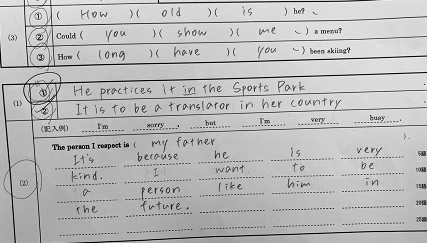 ① ( How )( old )( is ) he?
(3) ② Could ( you )( show )( me ) a menu?
③ How ( long )( have )( you ) been skiing?
(1) ① He practices it in the Sports Park
② It is to be a translator in her country
(記入例) I'm sorry , but I'm very busy .
The person I respect is ( my father ).
It's because he is very 5語
kind. I want to be 10語
(2) a person like him in 15語
the future. 20語
25語